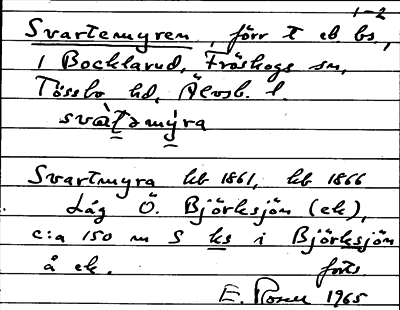 1-2
Svartemyren, förr t eb bs.,
i Bocklarud, Fröskogs sn,
Tössbo hd, Älvsb. l.
svàţəmýra
Svartmyra hb 1861, hb 1866
Låg Ö. Björksjön (ek),
c:a 150 m S ks i Björksjön
å ek. forts.
E. Rosell 1965